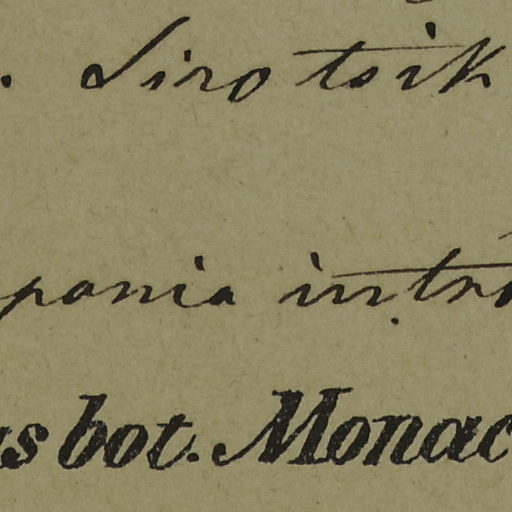 . Sirotsik
ponia intro
us bot. Monac